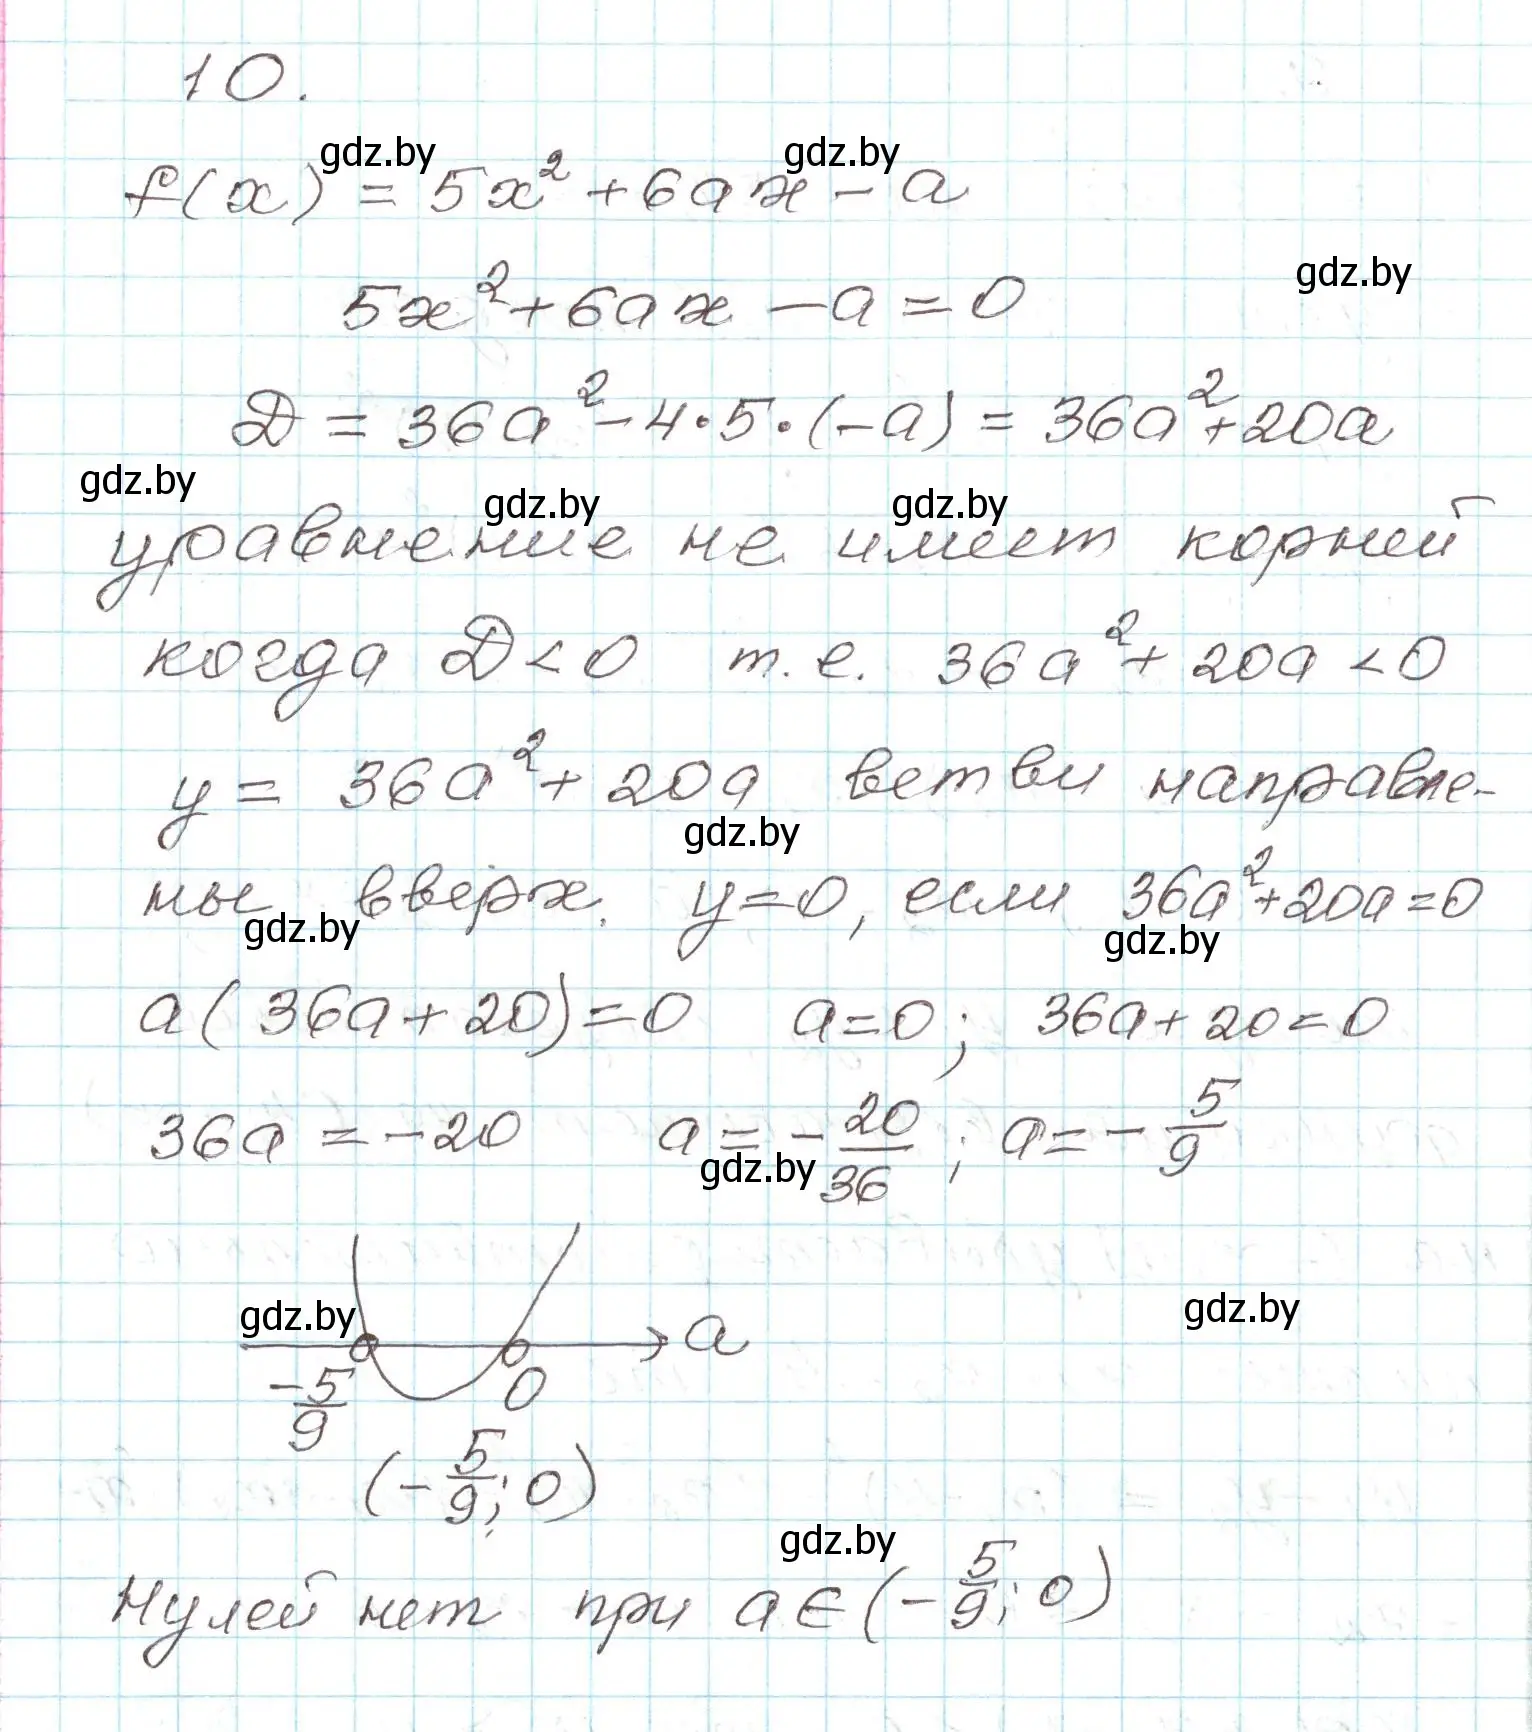 10.
gdz.by gdz.by
f(x) = 5x² + 6ax - a
gdz.by
5x² + 6ax - a = 0
D = 36a² - 4·5·(-a) = 36a² + 20a
gdz.by gdz.by gdz.by
уравнение не имеет корней
когда D < 0 т.е. 36a² + 20a < 0
y = 36a² + 20a ветви направле-
gdz.by
ны вверх. y = 0, если 36a² + 20a = 0
gdz.by gdz.by
a(36a + 20) = 0 a = 0; 36a + 20 = 0
36a = -20 a = -20/36; a = -5/9
gdz.by
gdz.by gdz.by
a
-5/9 0
(-5/9; 0)
gdz.by
Нулей нет при a ∈ (-5/9; 0)